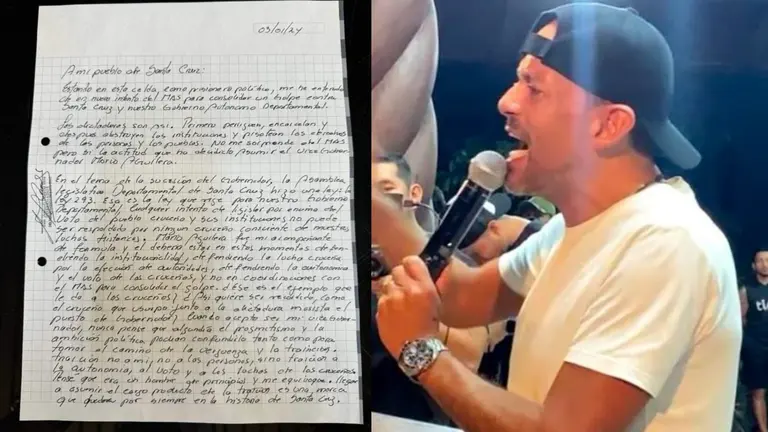 03/01/24
A mi pueblo de Santa Cruz:
Estando en esta celda, como prisionero político, me he enterado
de un nuevo intento del MAS para consolidar un Golpe contra
Santa Cruz y nuestro Gobierno Autonomo Departamental.
Los dictadores son asi. Primero persiguen, encarcelan y
despues destruyen las instituciones y pisotean los derechos
de las personas y los pueblos. No me sorprende del MAS
pero si la actitud que ha a asumir el vicegober
nador Mario Aguilera.
En el tema de la sucesión del Gobernador, la Asamblea
legislativa Departamental de Santa Cruz hizo una ley la
ley 293. Esa es la ley que rige para nuestro Gobierno
Departamental. Cualquier intento de legislar por encima del
Voto del pueblo cruceño y sus instituciones no puede
ser respaldado por ningun cruceño consciente de nuestras
luchas historicas. Mario Aguilera fue mi acompañante
de formula y el deberia estar en estos momentos defen
diendo la institucionalidad, defendiendo la lucha cruceña
por la elección de autoridades, defendiendo la autonomia
y el voto de los cruceños, y no en coordinaciones con
el MAS para consolidar el golpe. ¿Ese es el ejemplo que
le da a los cruceños? ¿Asi quiere ser recordado, como
el cruceño que usurpo junto a la dictadura masista el
puesto de Gobernador? Cuando acepto ser mi vice Gober
nador, nunca pense que algun dia el pragmatismo y la
ambición política podian confundirlo tanto como para
tomar el camino de la verguenza y la traicion.
traición no a mi, no a las personas, sino traición a
la autonomia, al voto y a las luchas de los cruceños.
Pense que era un hombre de principios y me equivoque. llegar
a asumir el cargo producto de la traición es una marca
que quedara por siempre en la historia de Santa Cruz.